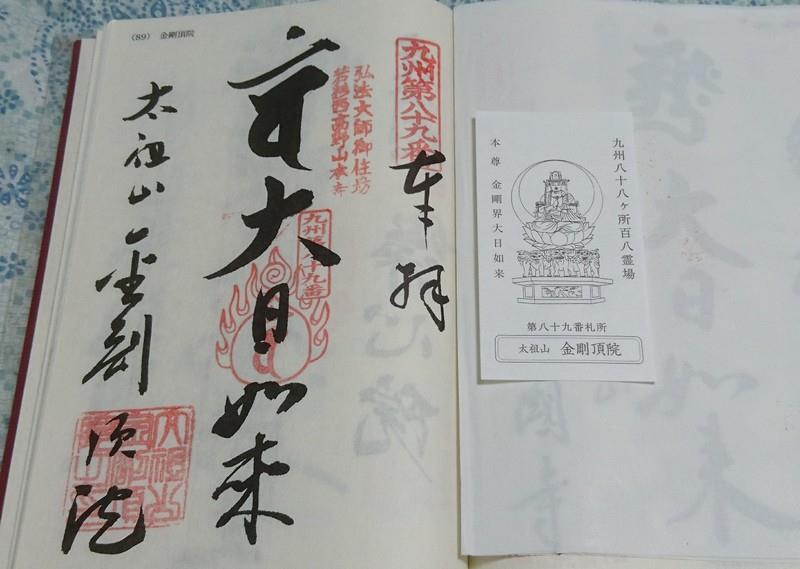 (89) 金剛頂院
九州第八十九番
奉拝
弘法大師御住坊
若杉西高野山本寺
九州第八十九番
大日如来
太祖山金剛頂院
九州八十八ヶ所百八霊場
本尊 金剛界大日如来
第八十九番札所
太祖山 金剛頂院